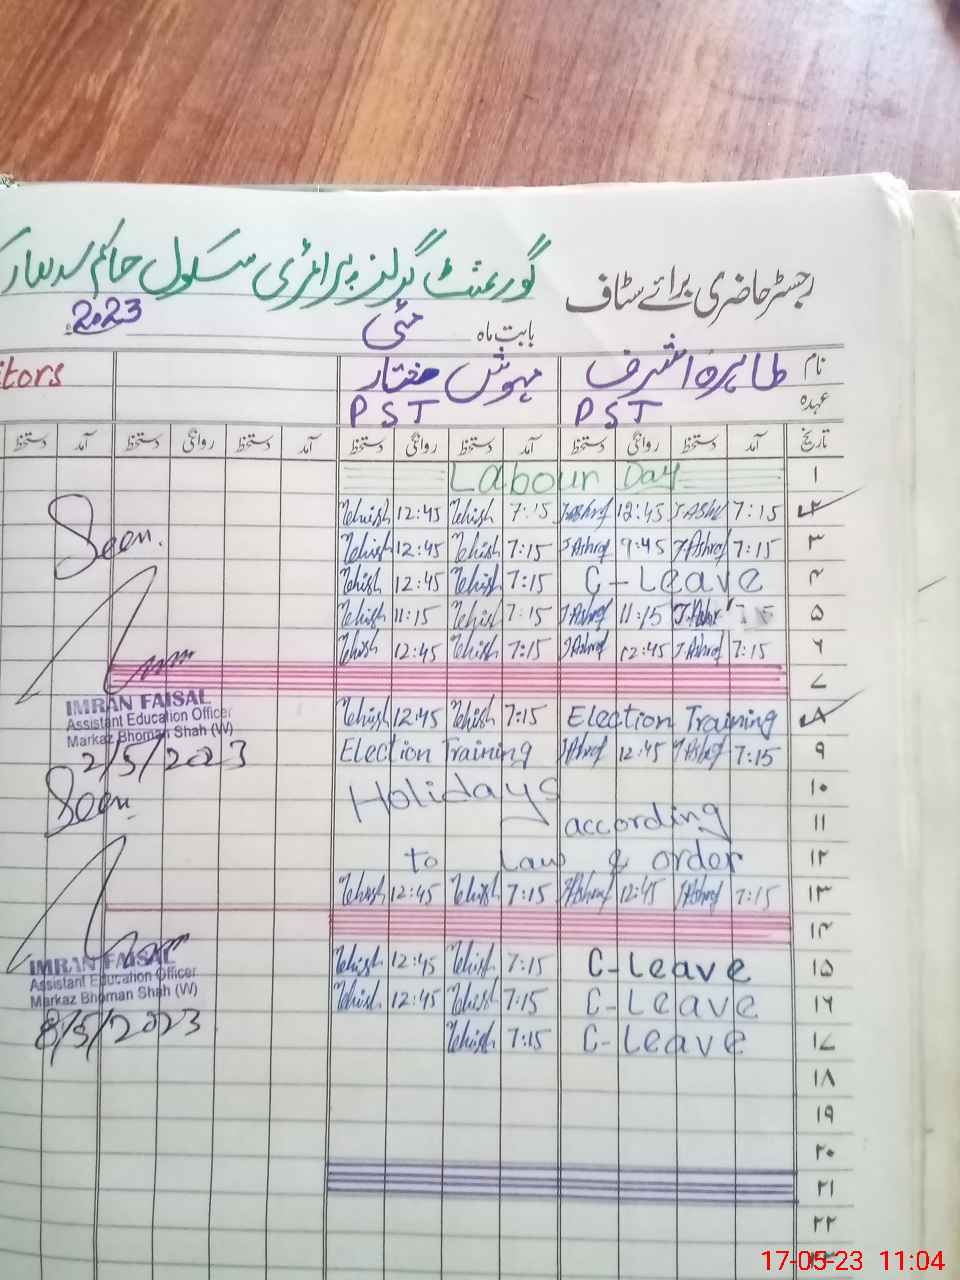 رجسٹر حاضری برائے سٹاف گورنمنٹ گرلز پرائمری سکول حاکم
بابت ماہ مئی 2023
نام طاہرہ اشرف مہوش مختار itors
عہدہ PST PST
تاریخ آمد دستخط روانگی دستخط آمد دستخط روانگی دستخط آمد دستخط روانگی دستخط آمد دستخط
۱ Labour Day
۲ 7:15 T.Ashr 12:45 T.Ashrof 7:15 Mehish 12:45 Mehish
۳ 7:15 T.Ashrof 9:45 T.Ashrof 7:15 Mehish 12:45 Mehish
۴ C-Leave 7:15 Mehish 12:45 Mehish
۵ 7:15 T.Ashr 11:15 T.Ashrof 7:15 Mehish 11:15 Mehish
۶ 7:15 T.Ashrof 12:45 T.Ashrof 7:15 Mehish 12:45 Mehish
۷
۸ Election Training 7:15 Mehish 12:45 Mehish
۹ 7:15 T.Ashrof 12:45 T.Ashrof Election Training
۱۰ Holidays
۱۱ according
۱۲ to Law & order
۱۳ 7:15 T.Ashrof 12:45 T.Ashrof 7:15 Mehish 12:45 Mehish
۱۴
۱۵ C-Leave 7:15 Mehish 12:45 Mehish
۱۶ C-Leave 7:15 Mehish 12:45 Mehish
۱۷ C-Leave 7:15 Mehish
۱۸
۱۹
۲۰
۲۱
۲۲
۲۳
Seen.
IMRAN FAISAL
Assistant Education Officer
Markaz Bhoman Shah (W)
2/5/2023
Seen
IMRAN FAISAL
Assistant Education Officer
Markaz Bhoman Shah (W)
8/5/2023
17-05-23 11:04